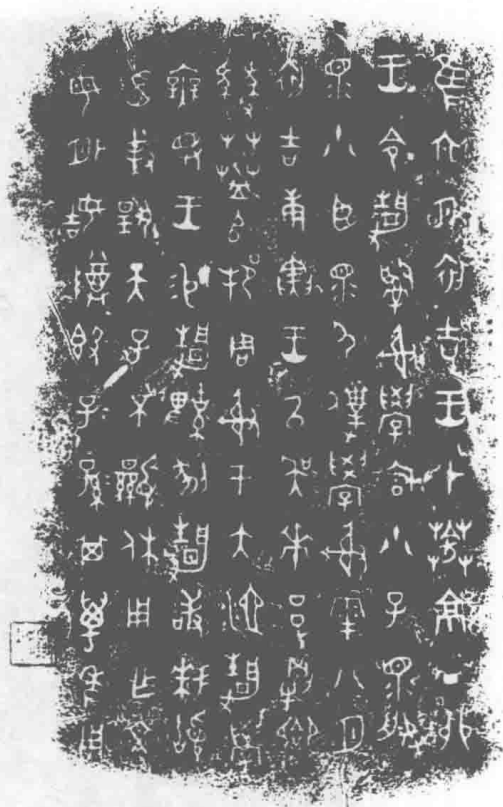 隹六月初吉王才𦸗京丁卯
王令静𤔲射學宮小子眔服
眔小臣眔尸僕學射雩八月
初吉庚寅王以吳𠦪吕犅卿
𦸗𠂤邦周射于大池静學
無斁王易静鞞剢静敢拜𩒨
首對揚天子不顯休用乍文
母外姞尊簋子孫其萬年用